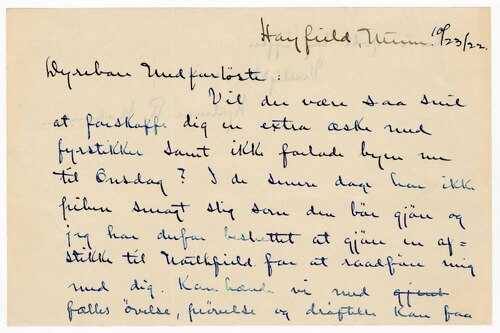 Hayfield, Minn. 10/23/22.
Dyrebare Medforløste:
Vil du være saa snil
at forskaffe dig en extra æske med
fyrstikker samt ikke forlade byen nu
til Onsdag? I de senere dage har ikke
piben smagt slig som den bør gjøre og
jeg har derfor besluttet at gjøre en af=
stikke til Northfield for at raadføre mig
med dig. Kanhænde vi med gjens
fælles øvelse, prøvelse og drøftelse kan faa